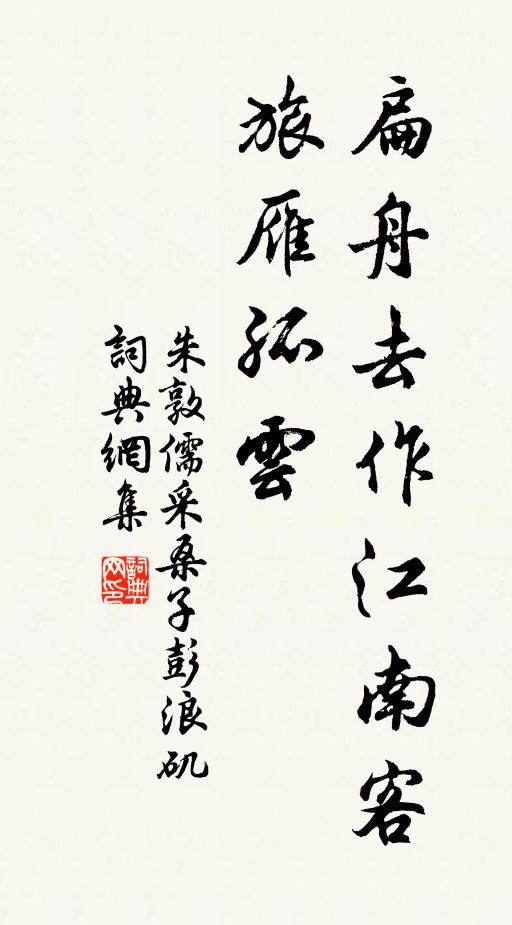 扁舟去作江南客
旅雁孤雲
朱敦儒采桑子彭浪矶
詞典網集
詞典网印